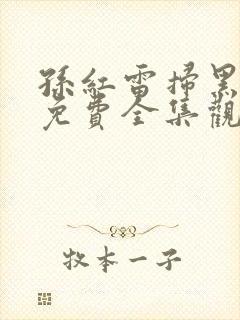 孫紅雷掃黑
免費全集觀
牧本一子